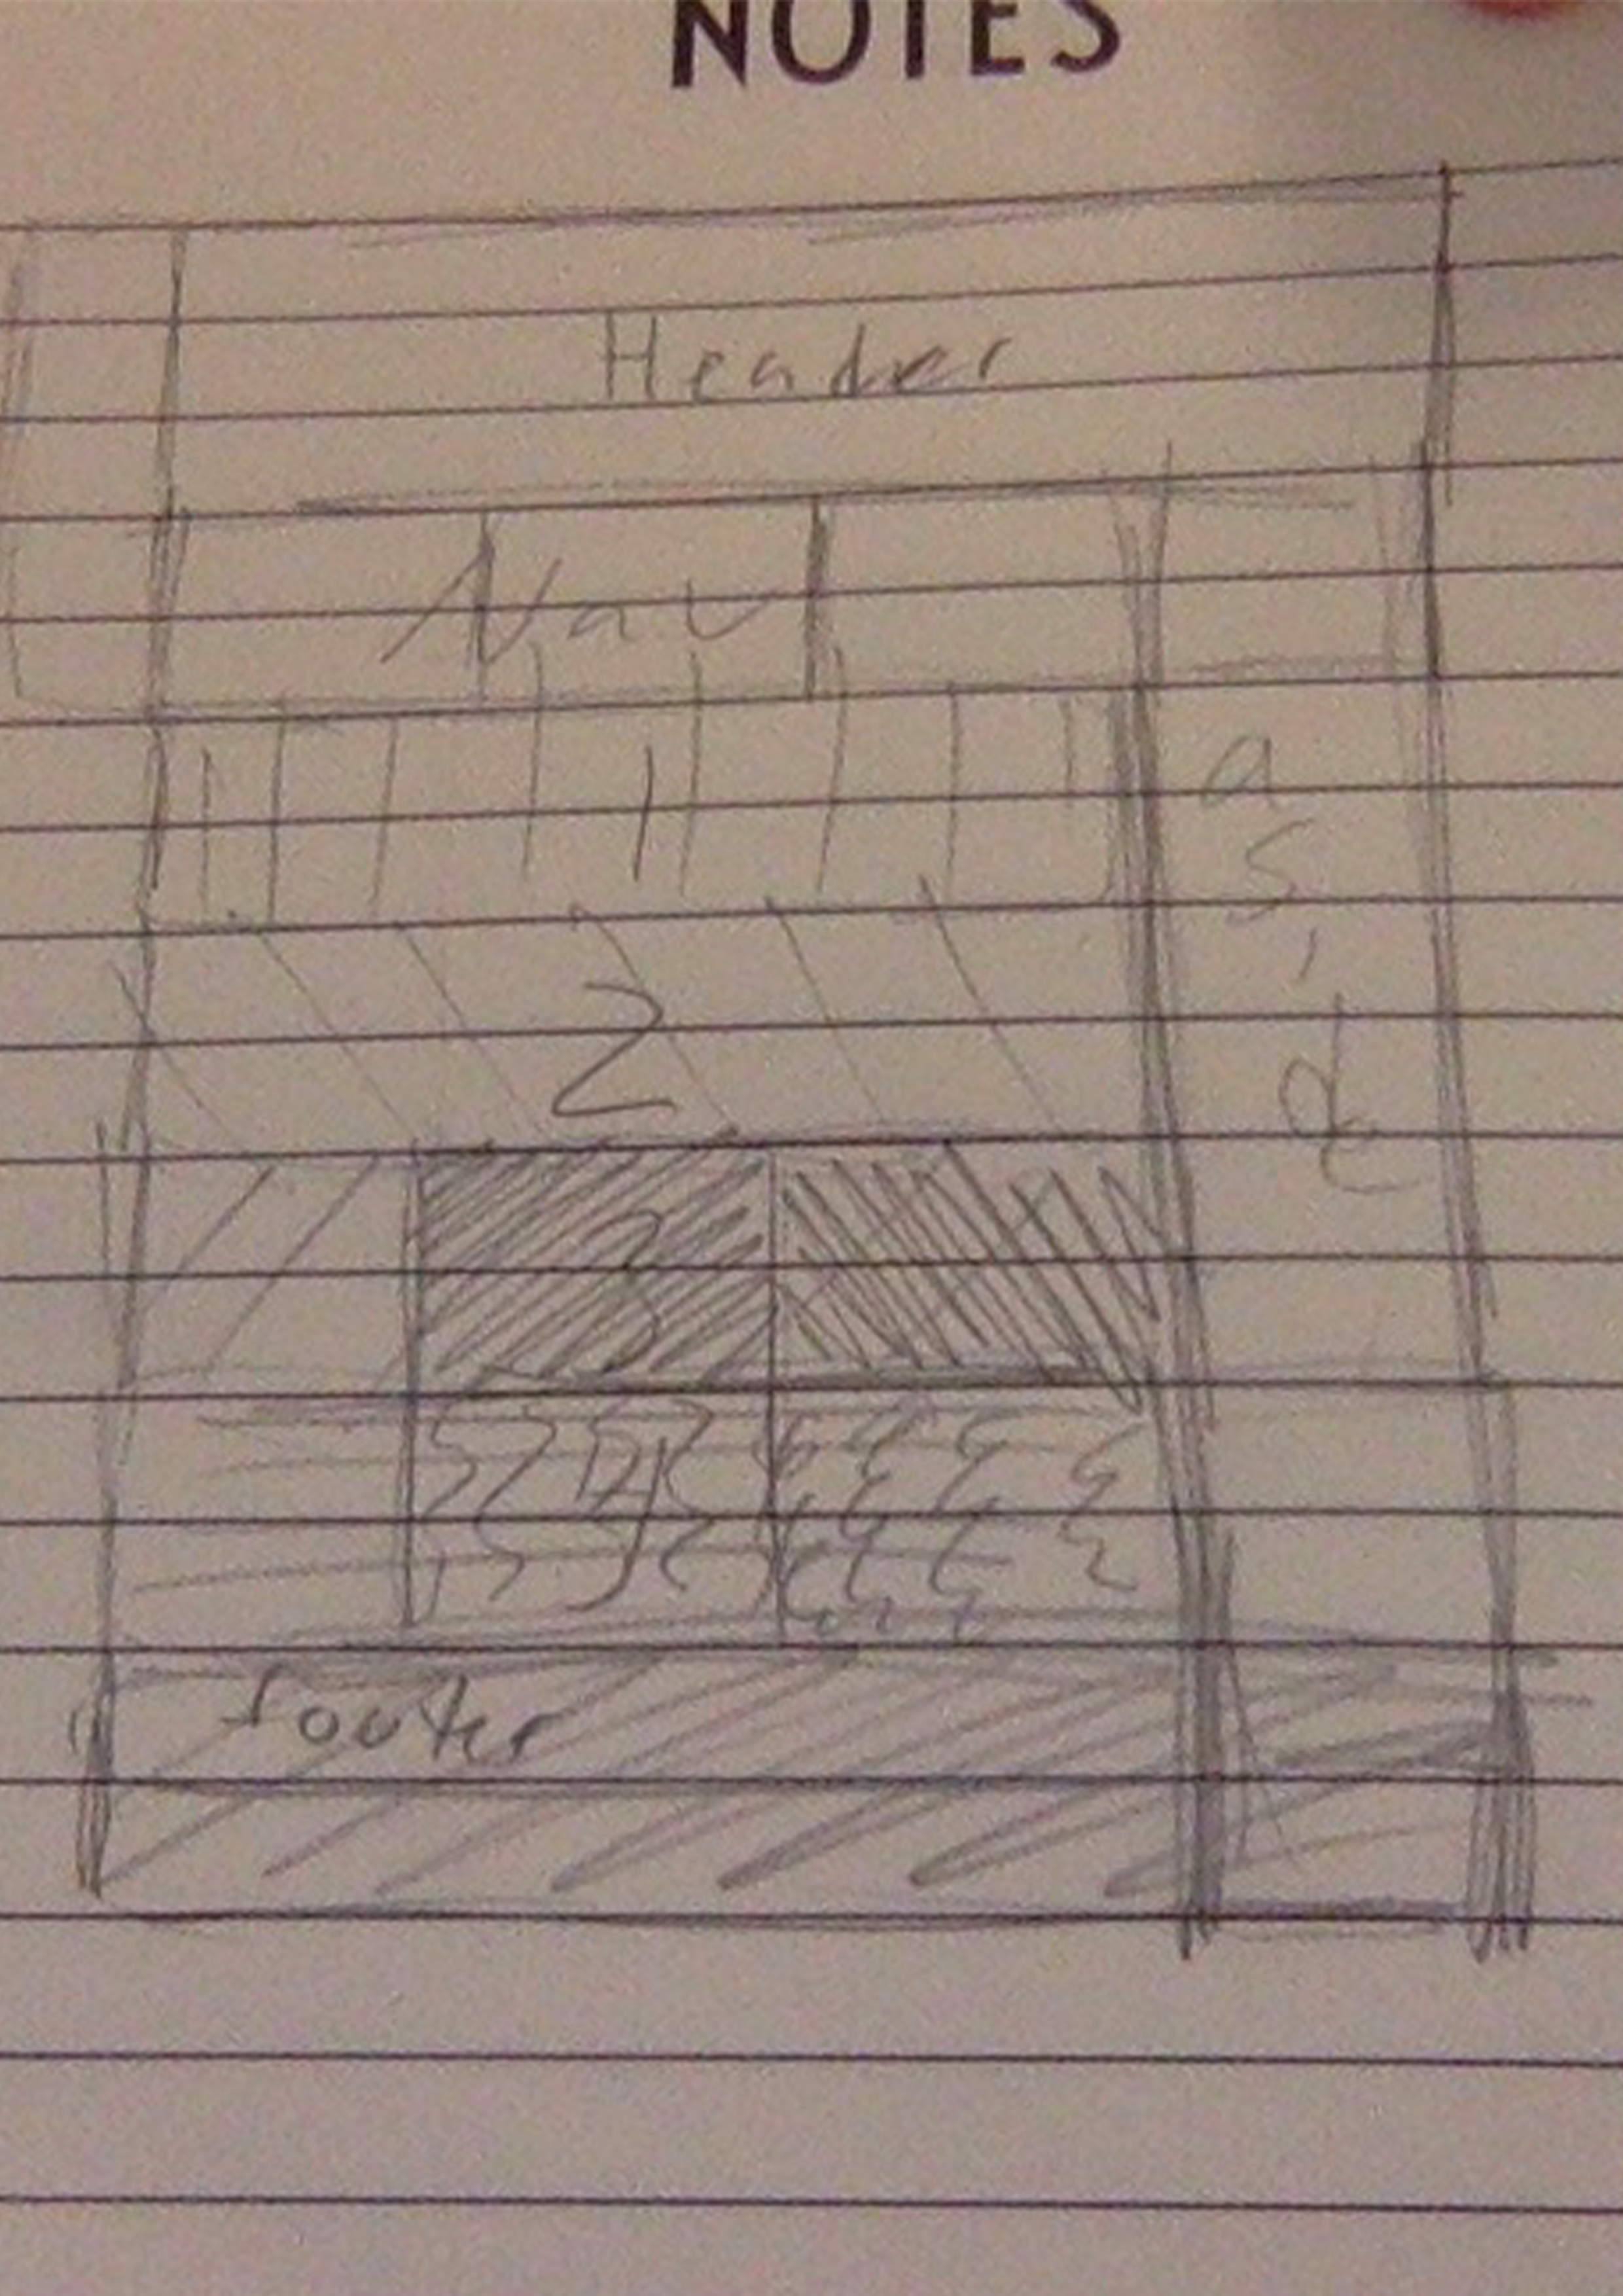 NOTES
Header
Nav
1
2
3
4
aside
footer